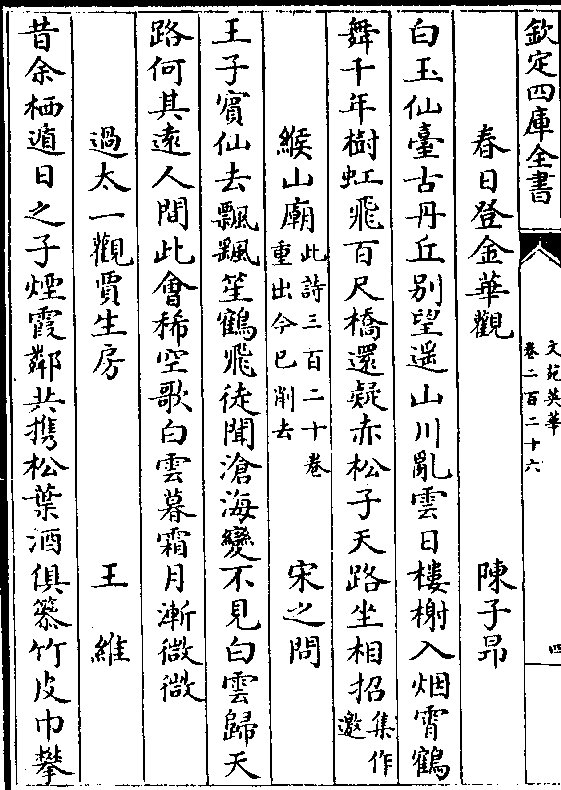 欽定四庫全書
文苑英華
卷二百二十六
四
春日登金華觀 陳子昂
白玉仙臺古丹丘别望遥山川亂雲日樓榭入烟霄鶴
舞千年樹虹飛百尺橋還疑赤松子天路坐相招集作邀
緱山廟此詩三百二十卷重出今已削去 宋之問
王子賓仙去飄颻笙鶴飛徒聞滄海變不見白雲歸天
路何其遠人間此會稀空歌白雲暮霜月漸微微
過太一觀賈生房 王維
昔余栖遁日之子煙霞鄰共攜松葉酒俱篸竹皮巾攀